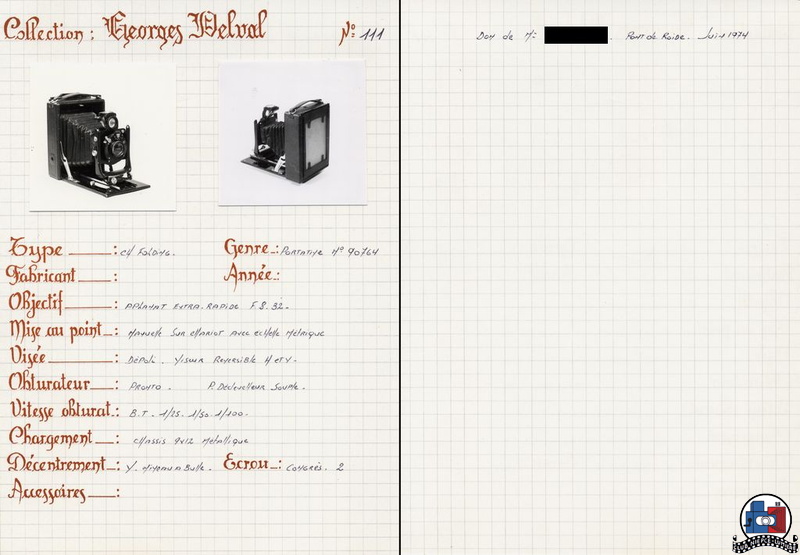 Collection : Georges Delval N° 111
Type : CH Folding.
Genre : Portative N° 90764
Fabricant :
Année :
Objectif : APLANAT EXTRA. RAPIDE F.8. 32.
Mise au point : Manuelle Sur Chariot avec echelle Métrique
Visée : Dépoli . Viseur Reversible H et V.
Obturateur : PRONTO . P. Declencheur Souple.
Vitesse obturat. : B.T. 1/25. 1/50. 1/100.
Chargement : Chassis 9x12 Métallique
Décentrement : V. Niveau a Bulle. Ecrou : Congrès. 2
Accessoires :
Don de Mr . Pont de Roide. Juin 1974